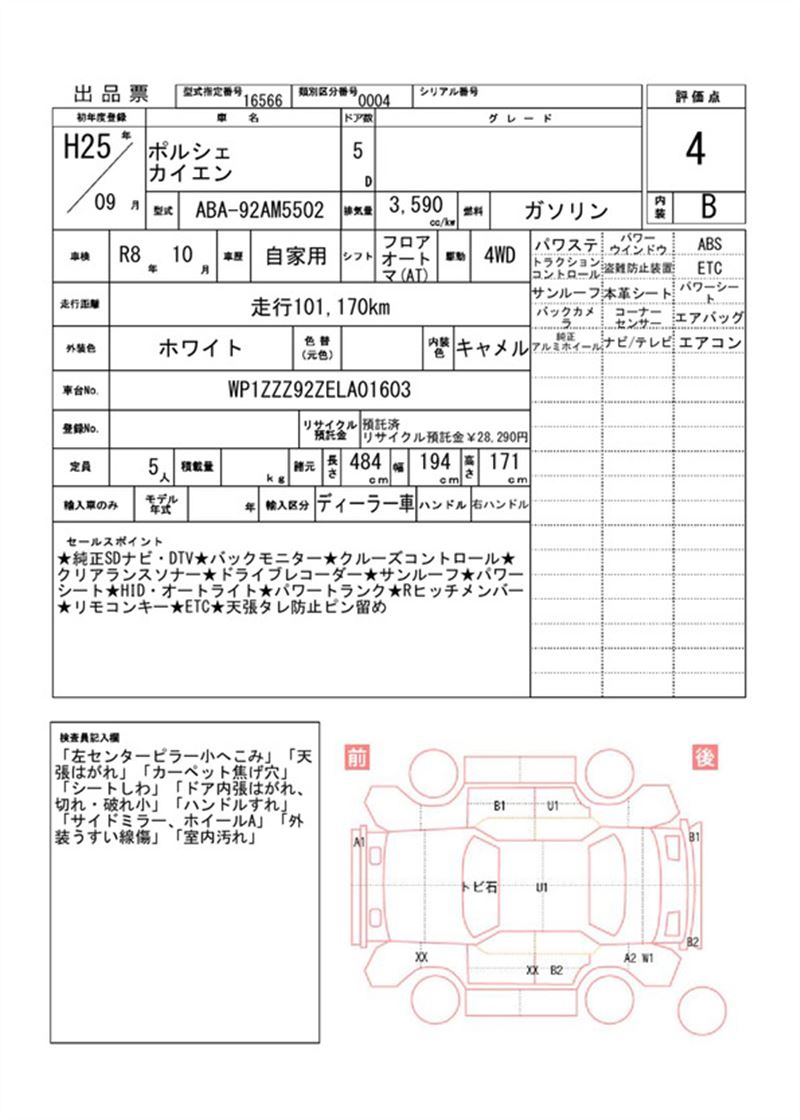 出品票
型式指定番号 16566 類別区分番号 0004 シリアル番号
評価点
4
内装 B
初年度登録 車名 ドア数 グレード
H25年 ポルシェ 5
カイエン D
09月 型式 ABA-92AM5502 排気量 3,590 cc/kw 燃料 ガソリン
車検 R8年 10月 車歴 自家用 シフト フロア
オート
マ(AT) 駆動 4WD
走行距離 走行101,170km
外装色 ホワイト 色替
(元色) 内装色 キャメル
車台No. WP1ZZZ92ZELA01603
登録No. リサイクル
預託金 預託済
リサイクル預託金￥28,290円
定員 5人 積載量 kg 諸元 長さ 484cm 幅 194cm 高さ 171cm
輸入車のみ モデル
年式 年 輸入区分 ディーラー車 ハンドル 右ハンドル
パワステ パワー
ウインドウ ABS
トラクション
コントロール 盗難防止装置 ETC
サンルーフ 本革シート パワーシー
ト
バックカメ
ラ コーナー
センサー エアバッグ
純正
アルミホイール ナビ/テレビ エアコン
セールスポイント
★純正SDナビ・DTV★バックモニター★クルーズコントロール★
クリアランスソナー★ドライブレコーダー★サンルーフ★パワー
シート★HID・オートライト★パワートランク★Rヒッチメンバー
★リモコンキー★ETC★天張タレ防止ピン留め
検査員記入欄
「左センターピラー小へこみ」「天
張はがれ」「カーペット焦げ穴」
「シートしわ」「ドア内張はがれ、
切れ・破れ小」「ハンドルすれ」
「サイドミラー、ホイールA」「外
装うすい線傷」「室内汚れ」
前 後
B1 U1
A1 B1
トビ石 U1
B2
XX XX B2 A2 W1